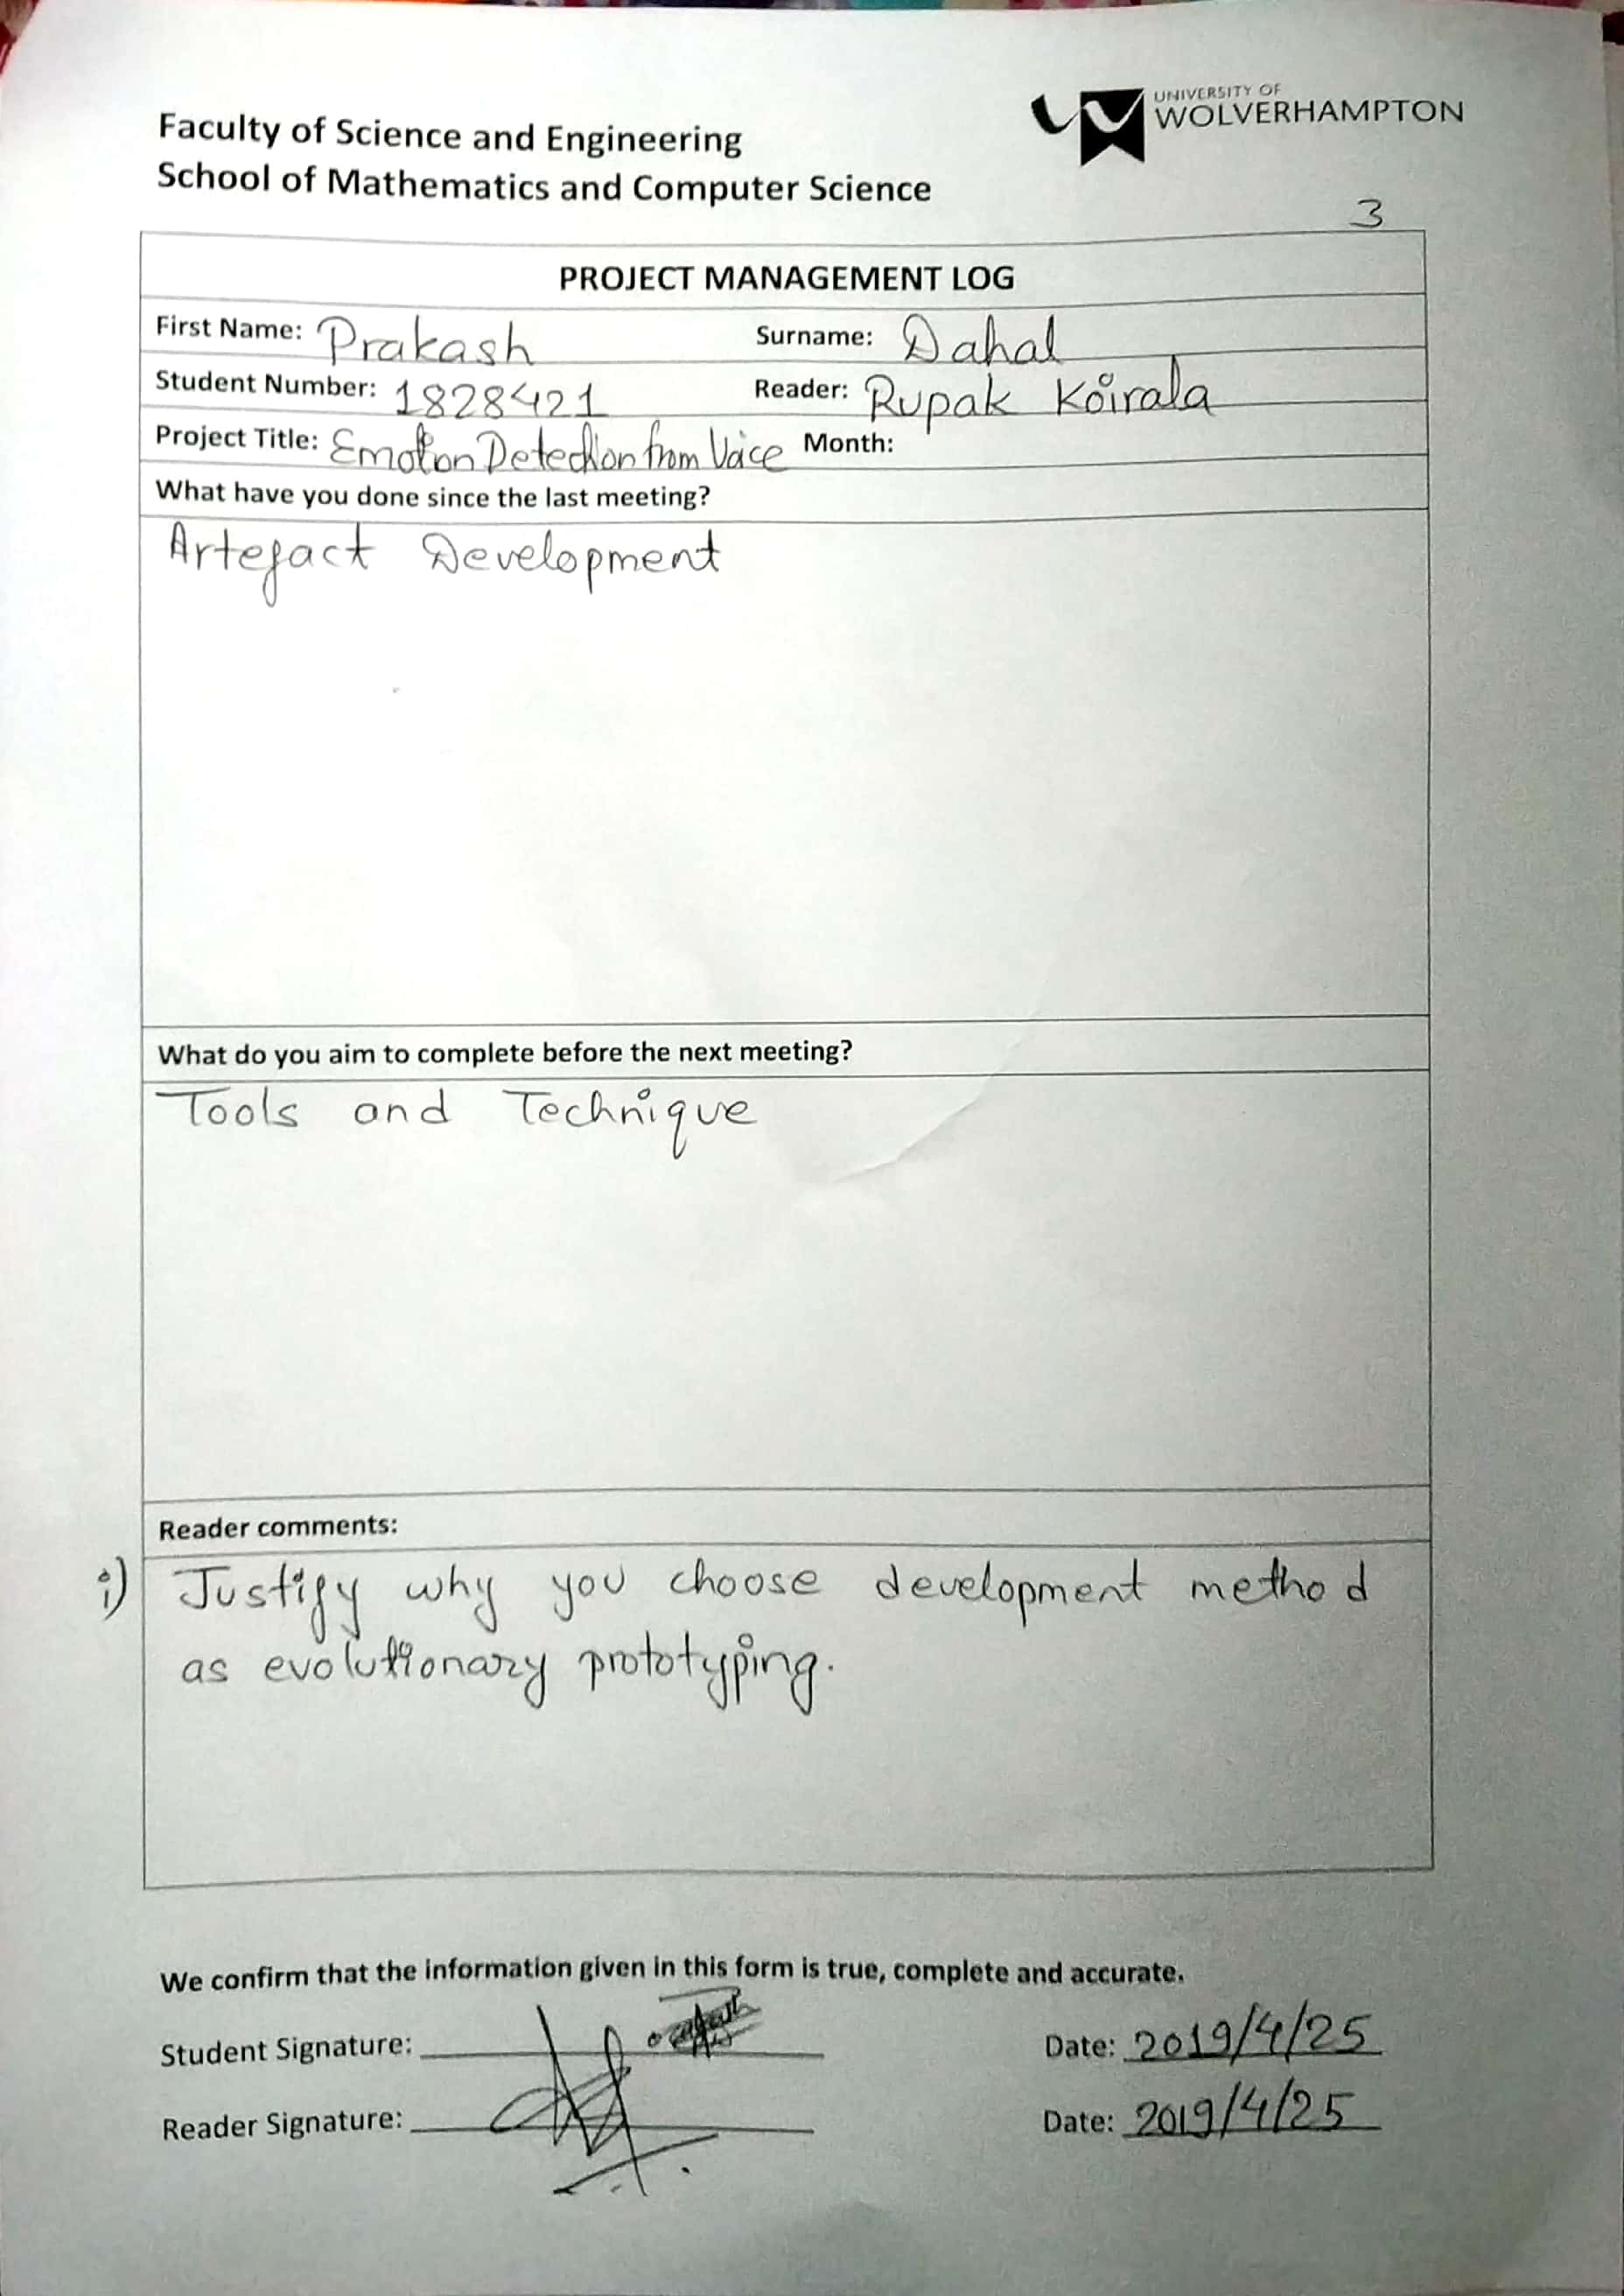 UNIVERSITY OF
WOLVERHAMPTON
Faculty of Science and Engineering
School of Mathematics and Computer Science
3
PROJECT MANAGEMENT LOG
First Name: Prakash Surname: Dahal
Student Number: 1828421 Reader: Rupak Koirala
Project Title: Emotion Detection from Voice Month:
What have you done since the last meeting?
Artefact Development
What do you aim to complete before the next meeting?
Tools and Technique
Reader comments:
i) Justify why you choose development method
as evolutionary prototyping.
We confirm that the information given in this form is true, complete and accurate.
Student Signature: Date: 2019/4/25
Reader Signature: Date: 2019/4/25